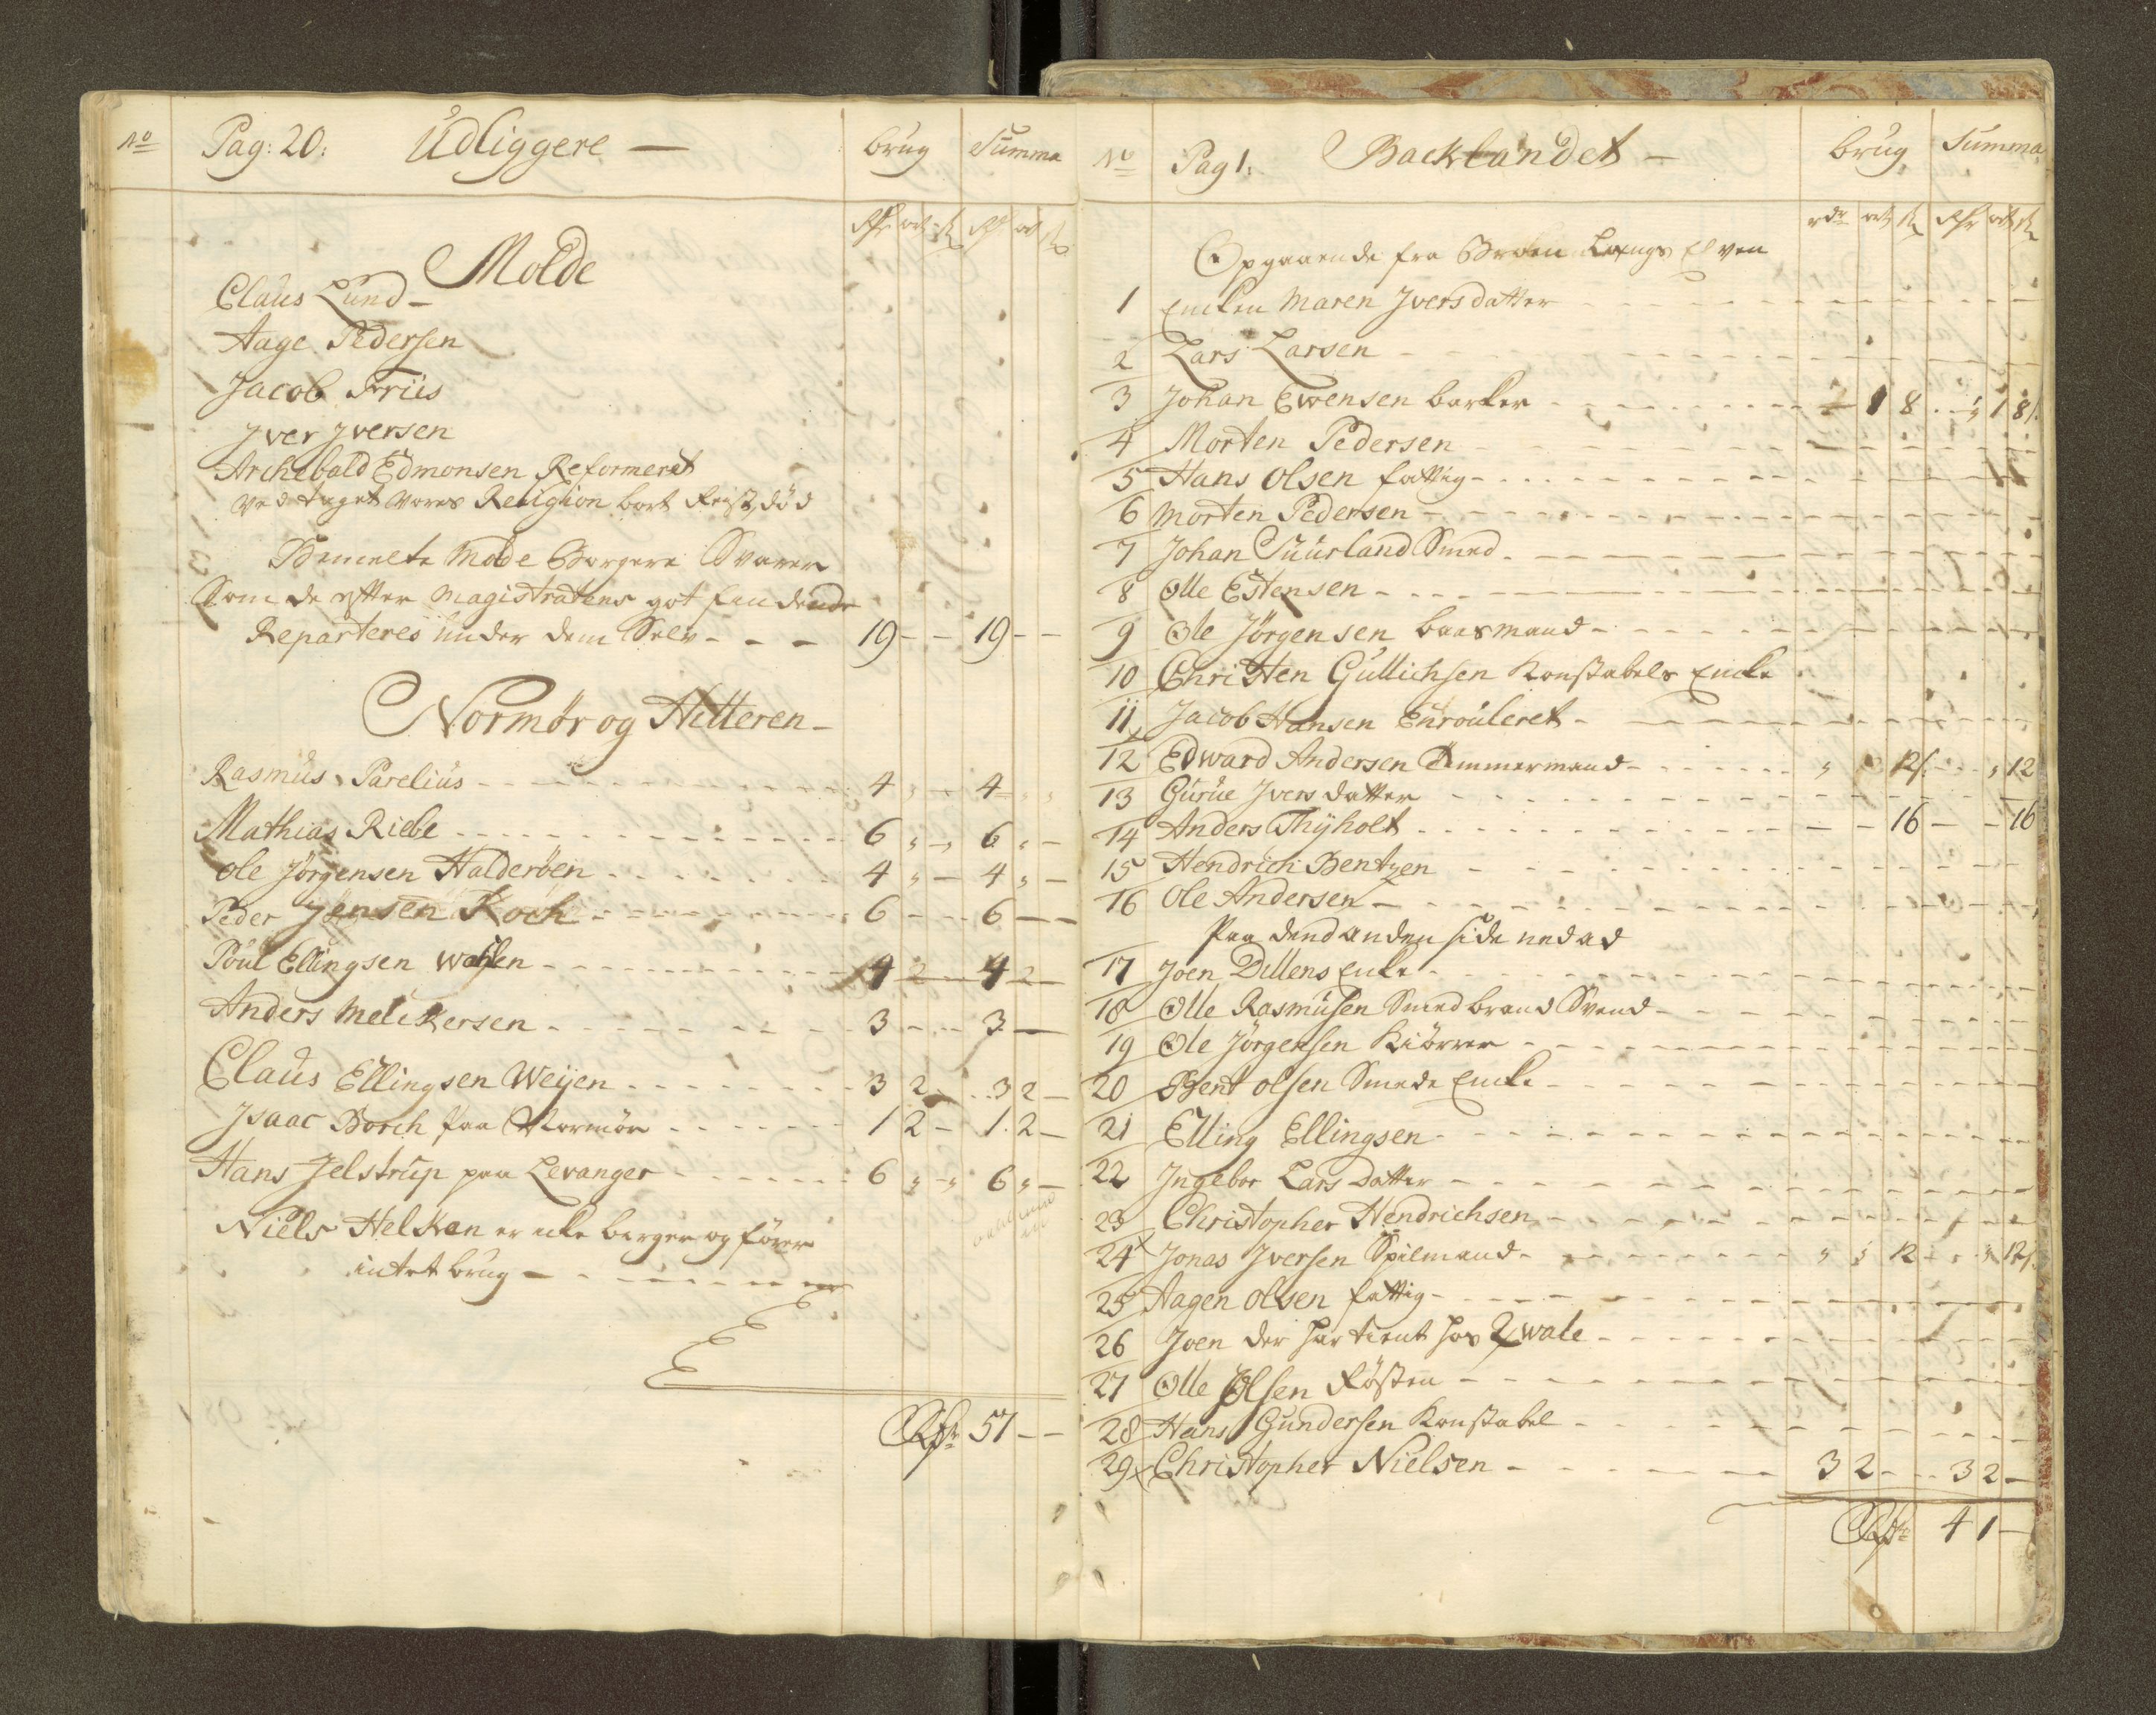 No Pag: 20. Udliggere — brug Summa
Molde
Claus Lund –
Aage Pedersen
Jacob Friis
Jver Jversen
Archebald Edmonsen Reformeret
ved taget vores Religion bort Reist, död
Bemelte Molde Borgere Svarer
Som de efter Magistratens got findende
Reparteres under dem Selv - - - 19 - - 19 - -
Normör og Hitteren –
Rasmus Parelius - - - 4 „ - 4 „ „
Mathias Riebe - - - 6 „ - 6 „ -
Ole Jörgensen Halderöen - - - 4 „ - 4 „ -
Peder Jensen Koch - - - 6 - - 6 - -
Poul Ellingsen - - - 4 2 - 4 2 -
Anders Melckersen - - - 3 - - 3 -
Claus Ellingsen Weyen - - - 3 2 - 3 2 -
Jsaac Borch paa Normör - - - 1 2 - 1. 2 -
Hans Jelstrup paa Levanger - - - 6 „ - 6 „ -
Niels Helkan er icke borger og förer
intet brug - - -
Rdr 57 - -
No Pag 1. Backlandet – brug Summa
rdr ort s Rdr ort s
Opgaaende fra Broen Langs Elven
1 Encken Maren Jversdatter - - -
2 Lars Larsen - - -
3 Johan Ewensen barker - - - 1 8 . - „ 1 8/.
4 Morten Pedersen - - -
5 Hans Olsen fattig - - -
6 Morten Pedersen - - -
7 Johan Suurland Smed - - -
8 Olle Estensen - - -
9 Ole Jörgensen baasmand - - -
10 Christen Gullichsen Konstabels Encke
11 Jacob Hansen Enrouleret - - -
12 Edward Andersen Tömmermand - - - „ 12/. - - „ 12
13 Gurue Jvers datter - - -
14 Anders Thyholt - - - 16 - - 16
15 Hendrich Bentzen - - -
16 Ole Andersen - - -
Paa dend anden side ned ad
17 Joen Dillens Encke - - -
18 Olle Rasmusen Smed brand Svend - - -
19 Ole Jörgensen Kiörrer - - -
20 Bent Olsen Smeds Encke - - -
21 Elling Ellingsen - - -
22 Jngebor Lars datter - - -
23 Christopher Hendrichsen - - -
24 x Jonas Jversen Spilmand - - - „ „ 12 - - „ 12/.
25 Hagen Olsen fattig - - -
26 Joen der har tient hos Qwale - - -
27 Olle Olsen Rösten - - -
28 Hans Gundersen Konstabel - - -
29 x Christopher Nielsen - - - 3 2 - - 3 2 -
Rdr 4 1 -